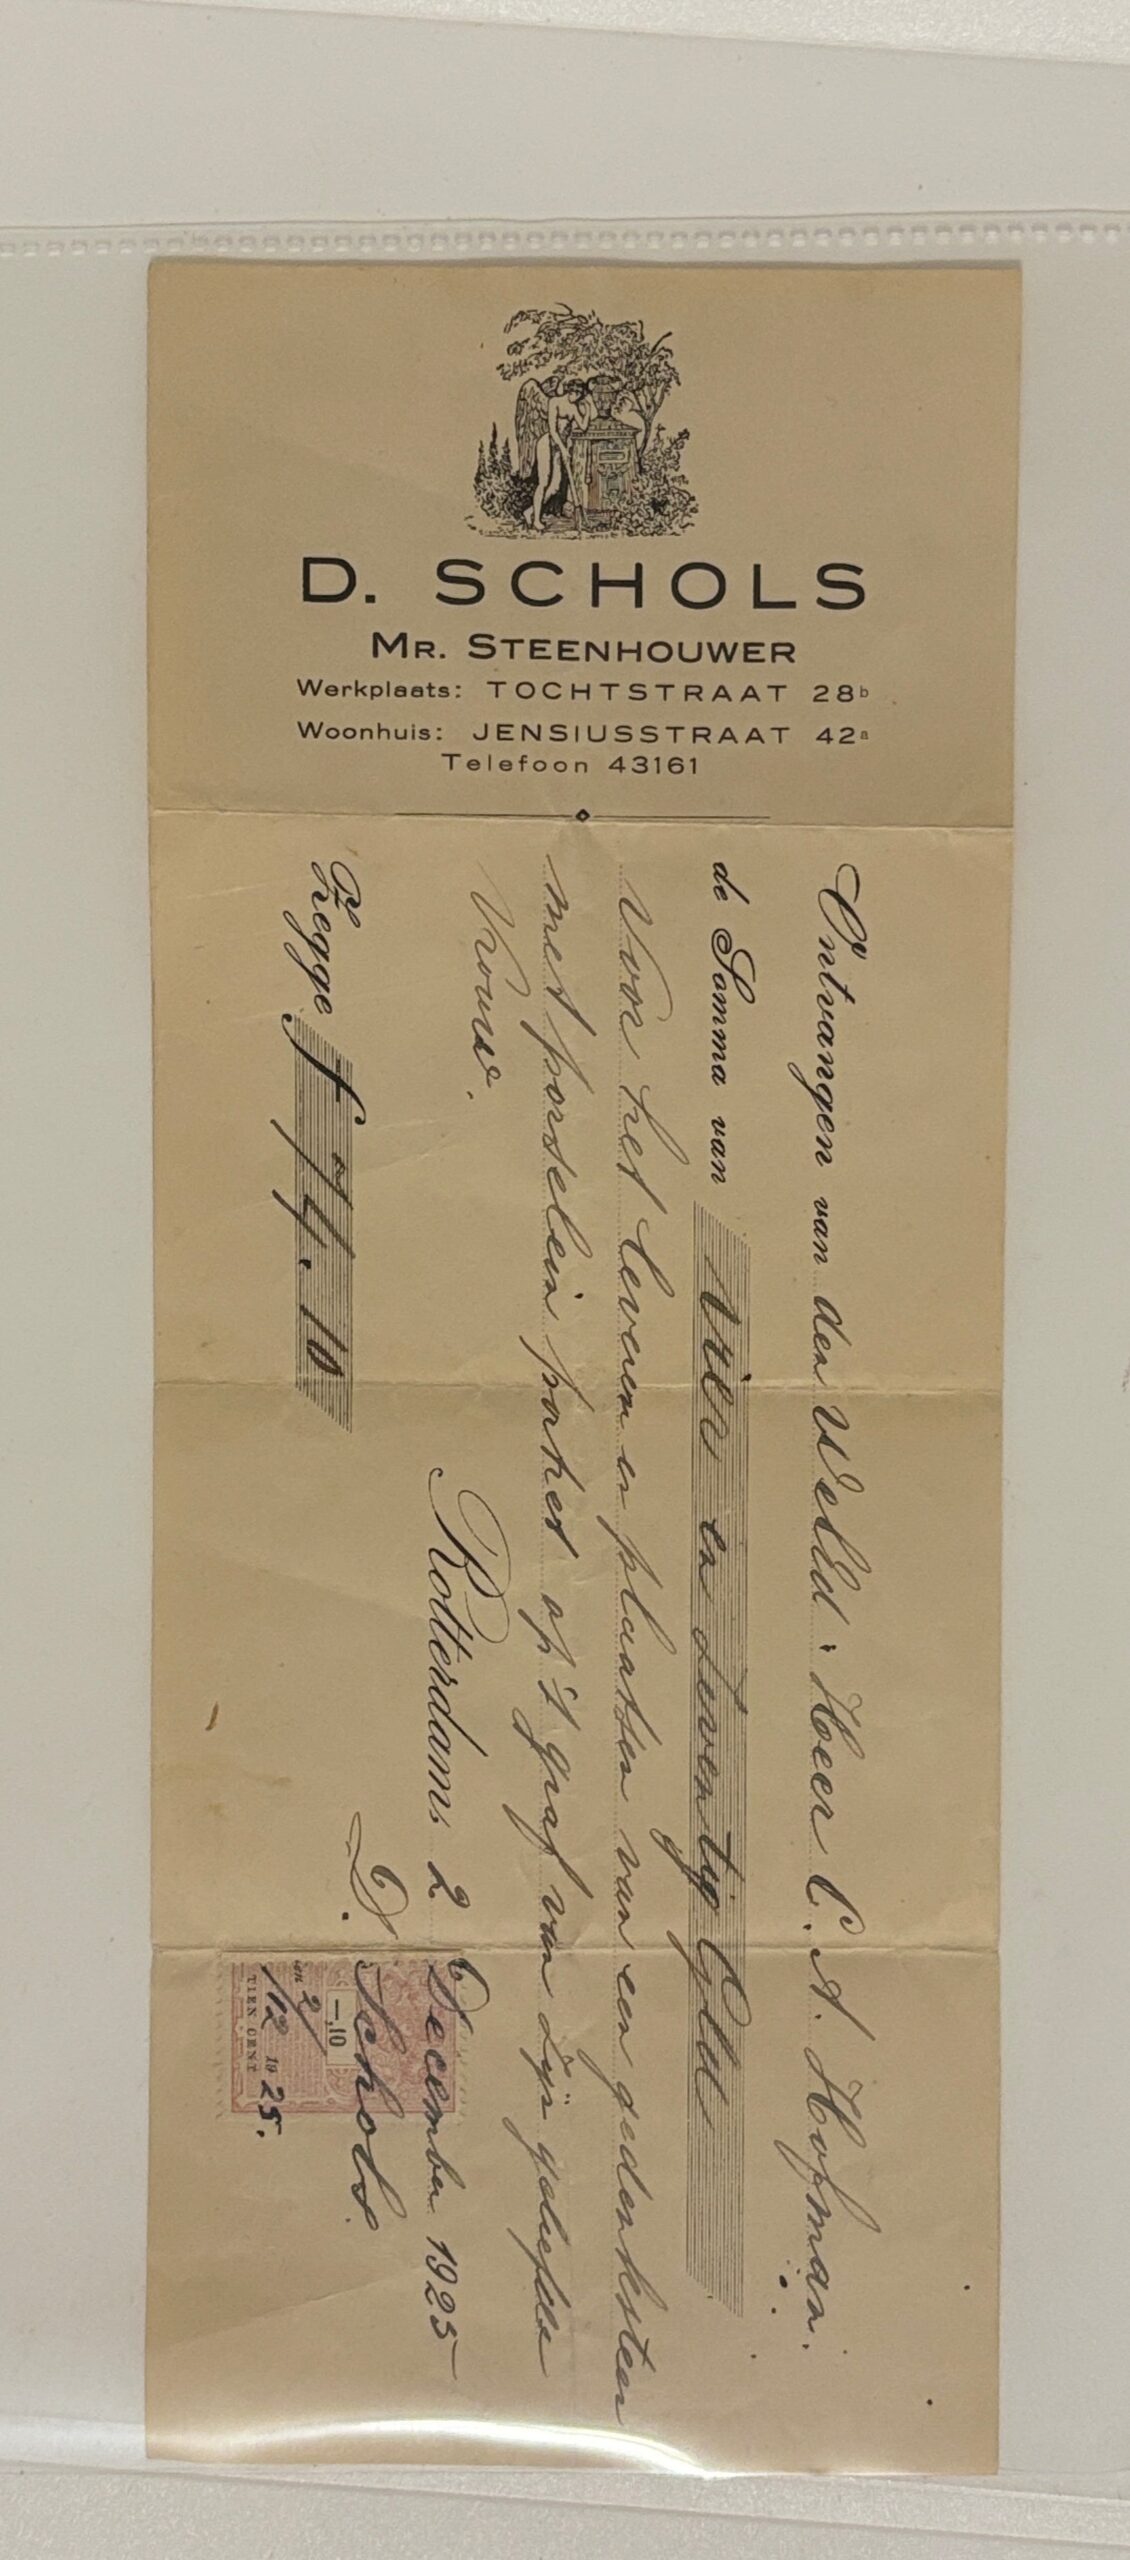 D. SCHOLS
MR. STEENHOUWER
Werkplaats: TOCHTSTRAAT 28b
Woonhuis: JENSIUSSTRAAT 42a
Telefoon 43161
Ontvangen van den WelEd. Heer C. A. Hofman.
de Somma van Vier en zeventig Gld
Voor het leveren en plaatsen van een gedenksteen
met porselein portret op 't graf van zijn geliefde
Vrouw.
Rotterdam, 2 December 1925
Zegge f 74.10
D. Schols.
-,10
den 2/
/12 19 25.
TIEN CENT